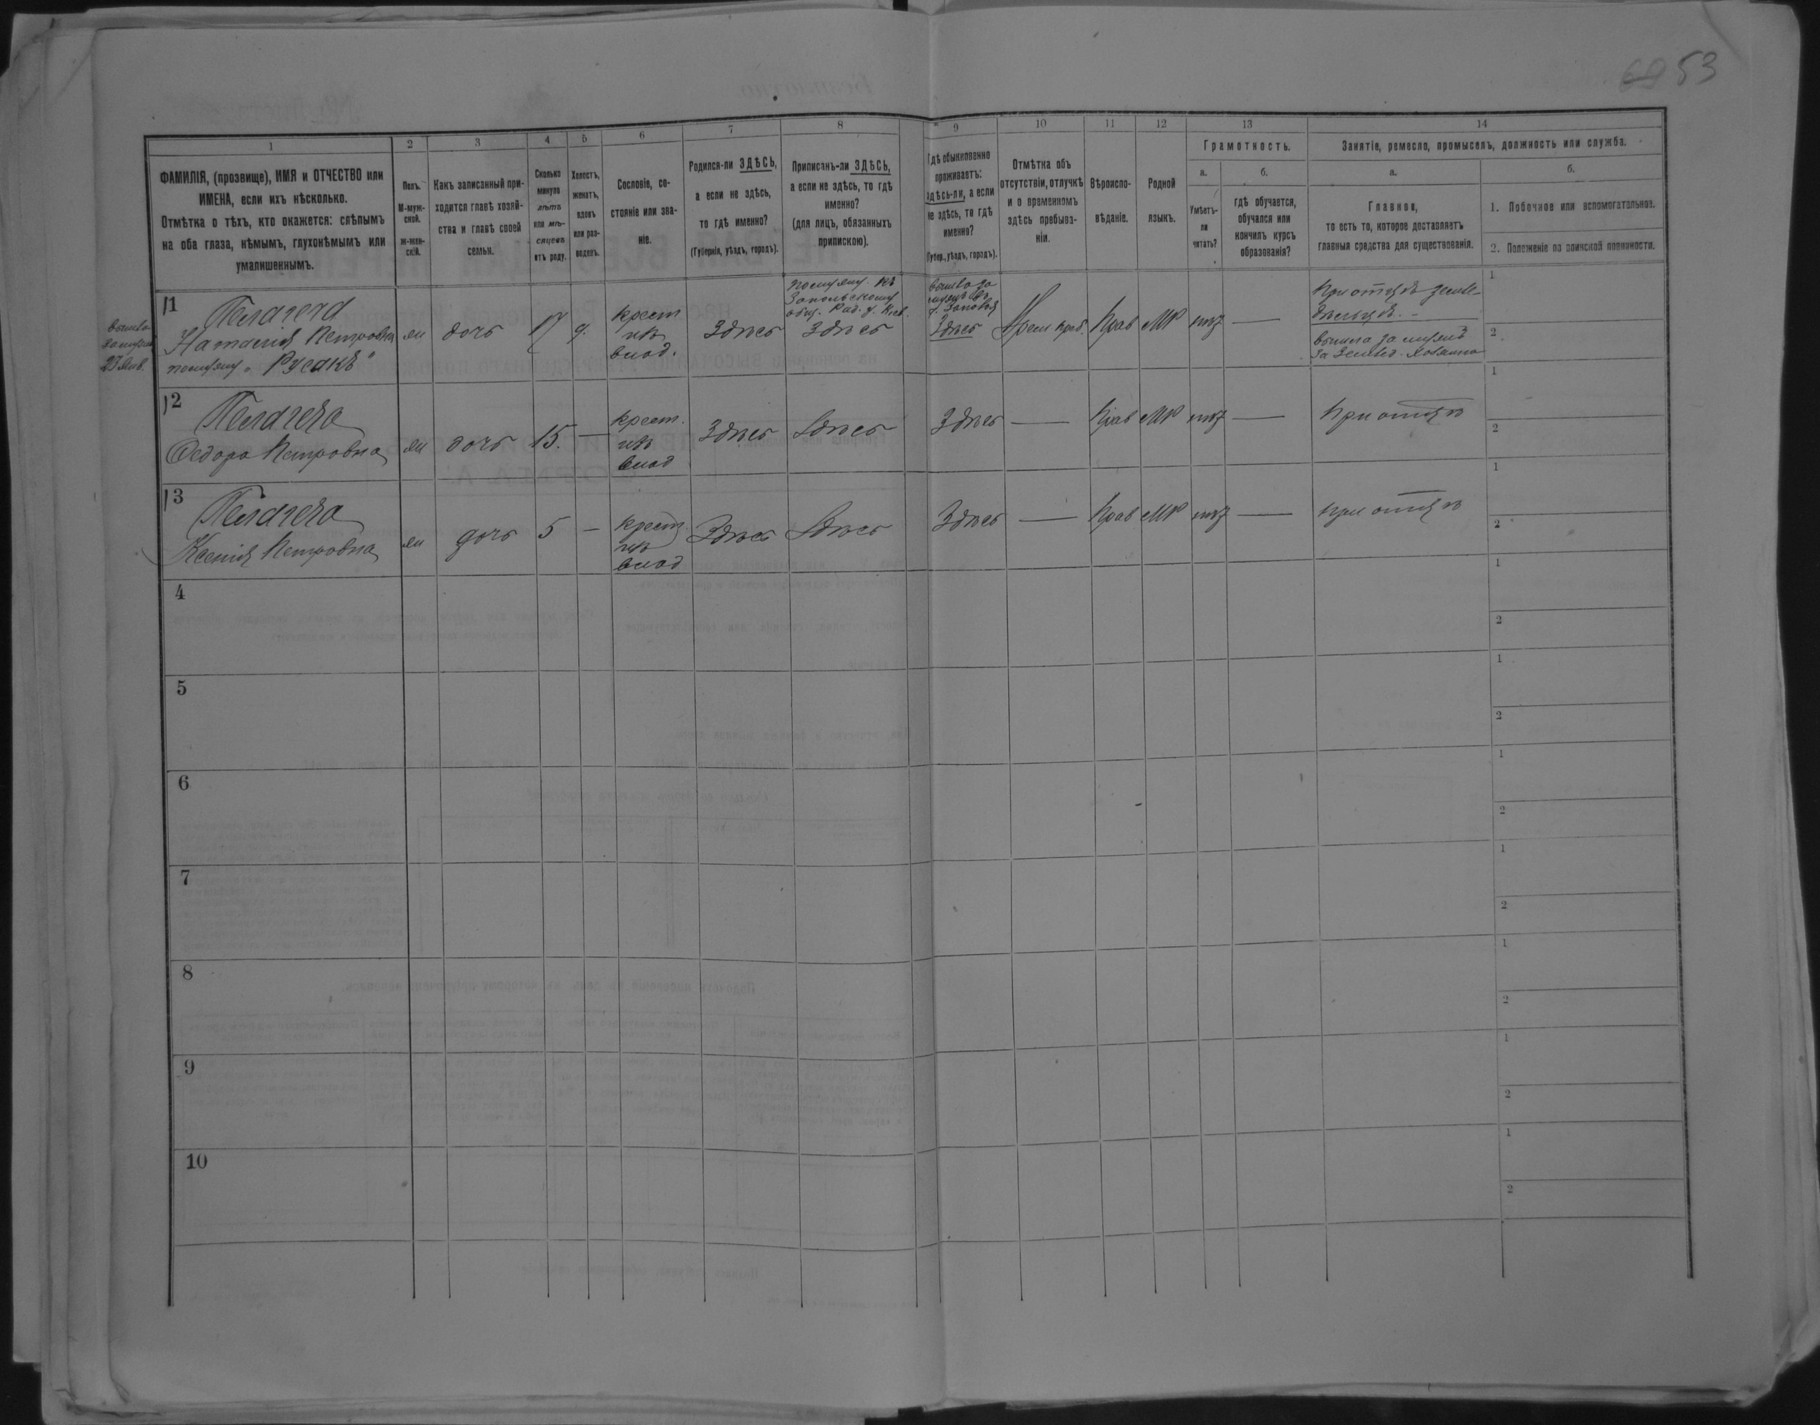 53
1
2
3
4
5
6
7
8
9
10
11
12
13
14
ФАМИЛІЯ, (прозвище), ИМЯ и ОТЧЕСТВО или
ИМЕНА, если ихъ нѣсколько.
Отмѣтка о тѣхъ, кто окажется: слѣпымъ
на оба глаза, нѣмымъ, глухонѣмымъ или
умалишеннымъ.
Полъ.
М-муж-
ской.
Ж-жен-
скій.
Какъ записанный при-
ходится главѣ хозяй-
ства и главѣ своей
семьи.
Сколько
минуло
лѣтъ
или мѣ-
сяцевъ
отъ роду.
Холостъ,
женатъ,
вдовъ
или раз-
веденъ.
Сословіе, со-
стояніе или зва-
ніе.
Родился-ли ЗДѢСЬ,
а если не здѣсь,
то гдѣ именно?
(Губернія, уѣздъ, городъ).
Приписанъ-ли ЗДѢСЬ,
а если не здѣсь, то гдѣ
именно?
(для лицъ, обязанныхъ
припискою).
Гдѣ обыкновенно
проживаетъ:
здѣсь-ли, а если
не здѣсь, то гдѣ
именно?
(Губер., уѣздъ, городъ).
Отмѣтка объ
отсутствіи, отлучкѣ
и о временномъ
здѣсь пребыва-
ніи.
Вѣроиспо-
вѣданіе.
Родной
языкъ.
Грамотность.
а.
Умѣетъ-
ли
читать?
б.
гдѣ обучается,
обучался или
кончилъ курсъ
образованія?
Занятіе, ремесло, промыселъ, должность или служба.
а.
Главное,
то есть то, которое доставляетъ
главныя средства для существованія.
б.
1. Побочное или вспомогательное.
2. Положеніе по воинской повинности.
1
Наталія Петровна
по мужу „Русакъ"
жн
дочь
крест
изъ
влад.
Здѣсь
Здѣсь
Здѣсь
Прав
МР
нѣт
—
При отцѣ земле-
вышла за мужъ
1
2
2
Федора Петровна
жн
дочь
15.
—
крест.
изъ
влад
Здѣсь
Здѣсь
Здѣсь
—
Прав
МР
нѣт
—
при отцѣ
1
2
3
Ксенія Петровна
жн
дочь
5
—
крест
изъ
влад
Здѣсь
Здѣсь
Здѣсь
—
Прав
МР
нѣт
—
при отцѣ
1
2
4
1
2
5
1
2
6
1
2
7
1
2
8
1
2
9
1
2
10
1
2